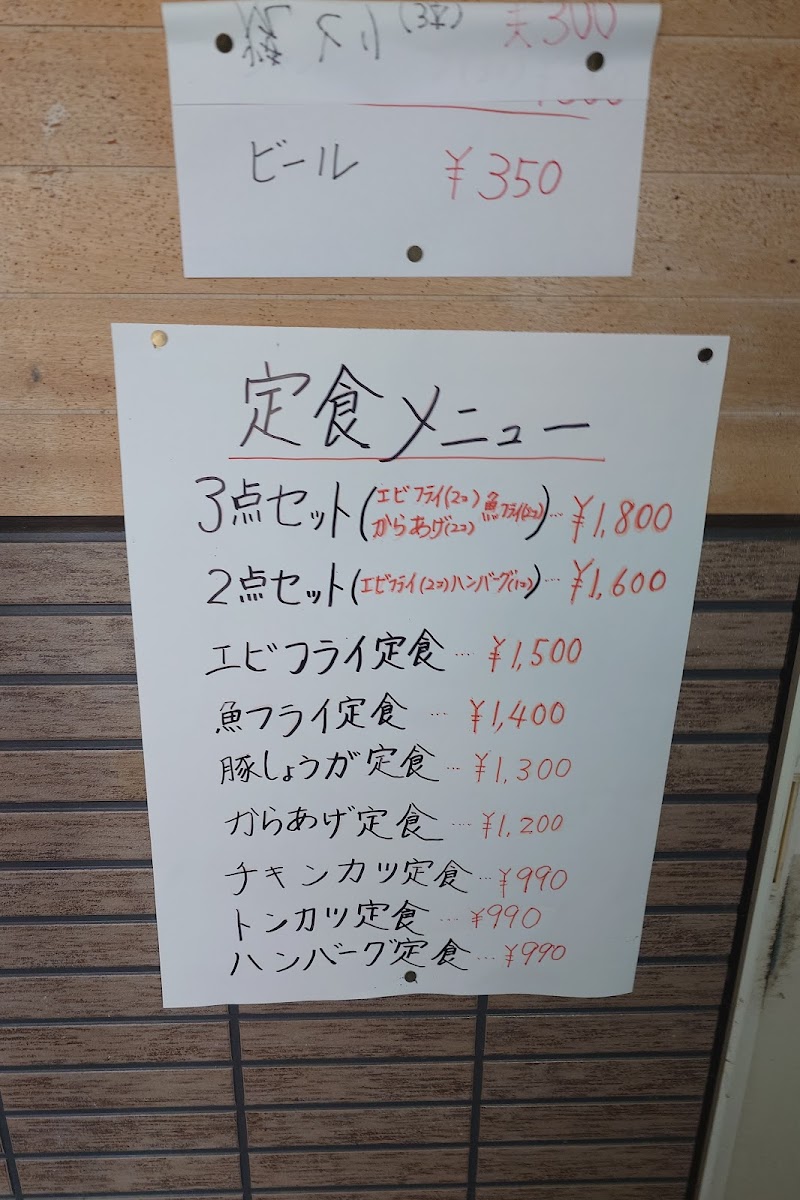 (3本) ¥300
ビール ¥350
定食メニュー
3点セット(エビフライ(2コ) からあげ(2コ) 魚フライ(2コ))…¥1,800
2点セット(エビフライ(2コ)ハンバーグ(1コ))…¥1,600
エビフライ定食…¥1,500
魚フライ定食…¥1,400
豚しょうが定食…¥1,300
からあげ定食…¥1,200
チキンカツ定食…¥990
トンカツ定食…¥990
ハンバーグ定食…¥990